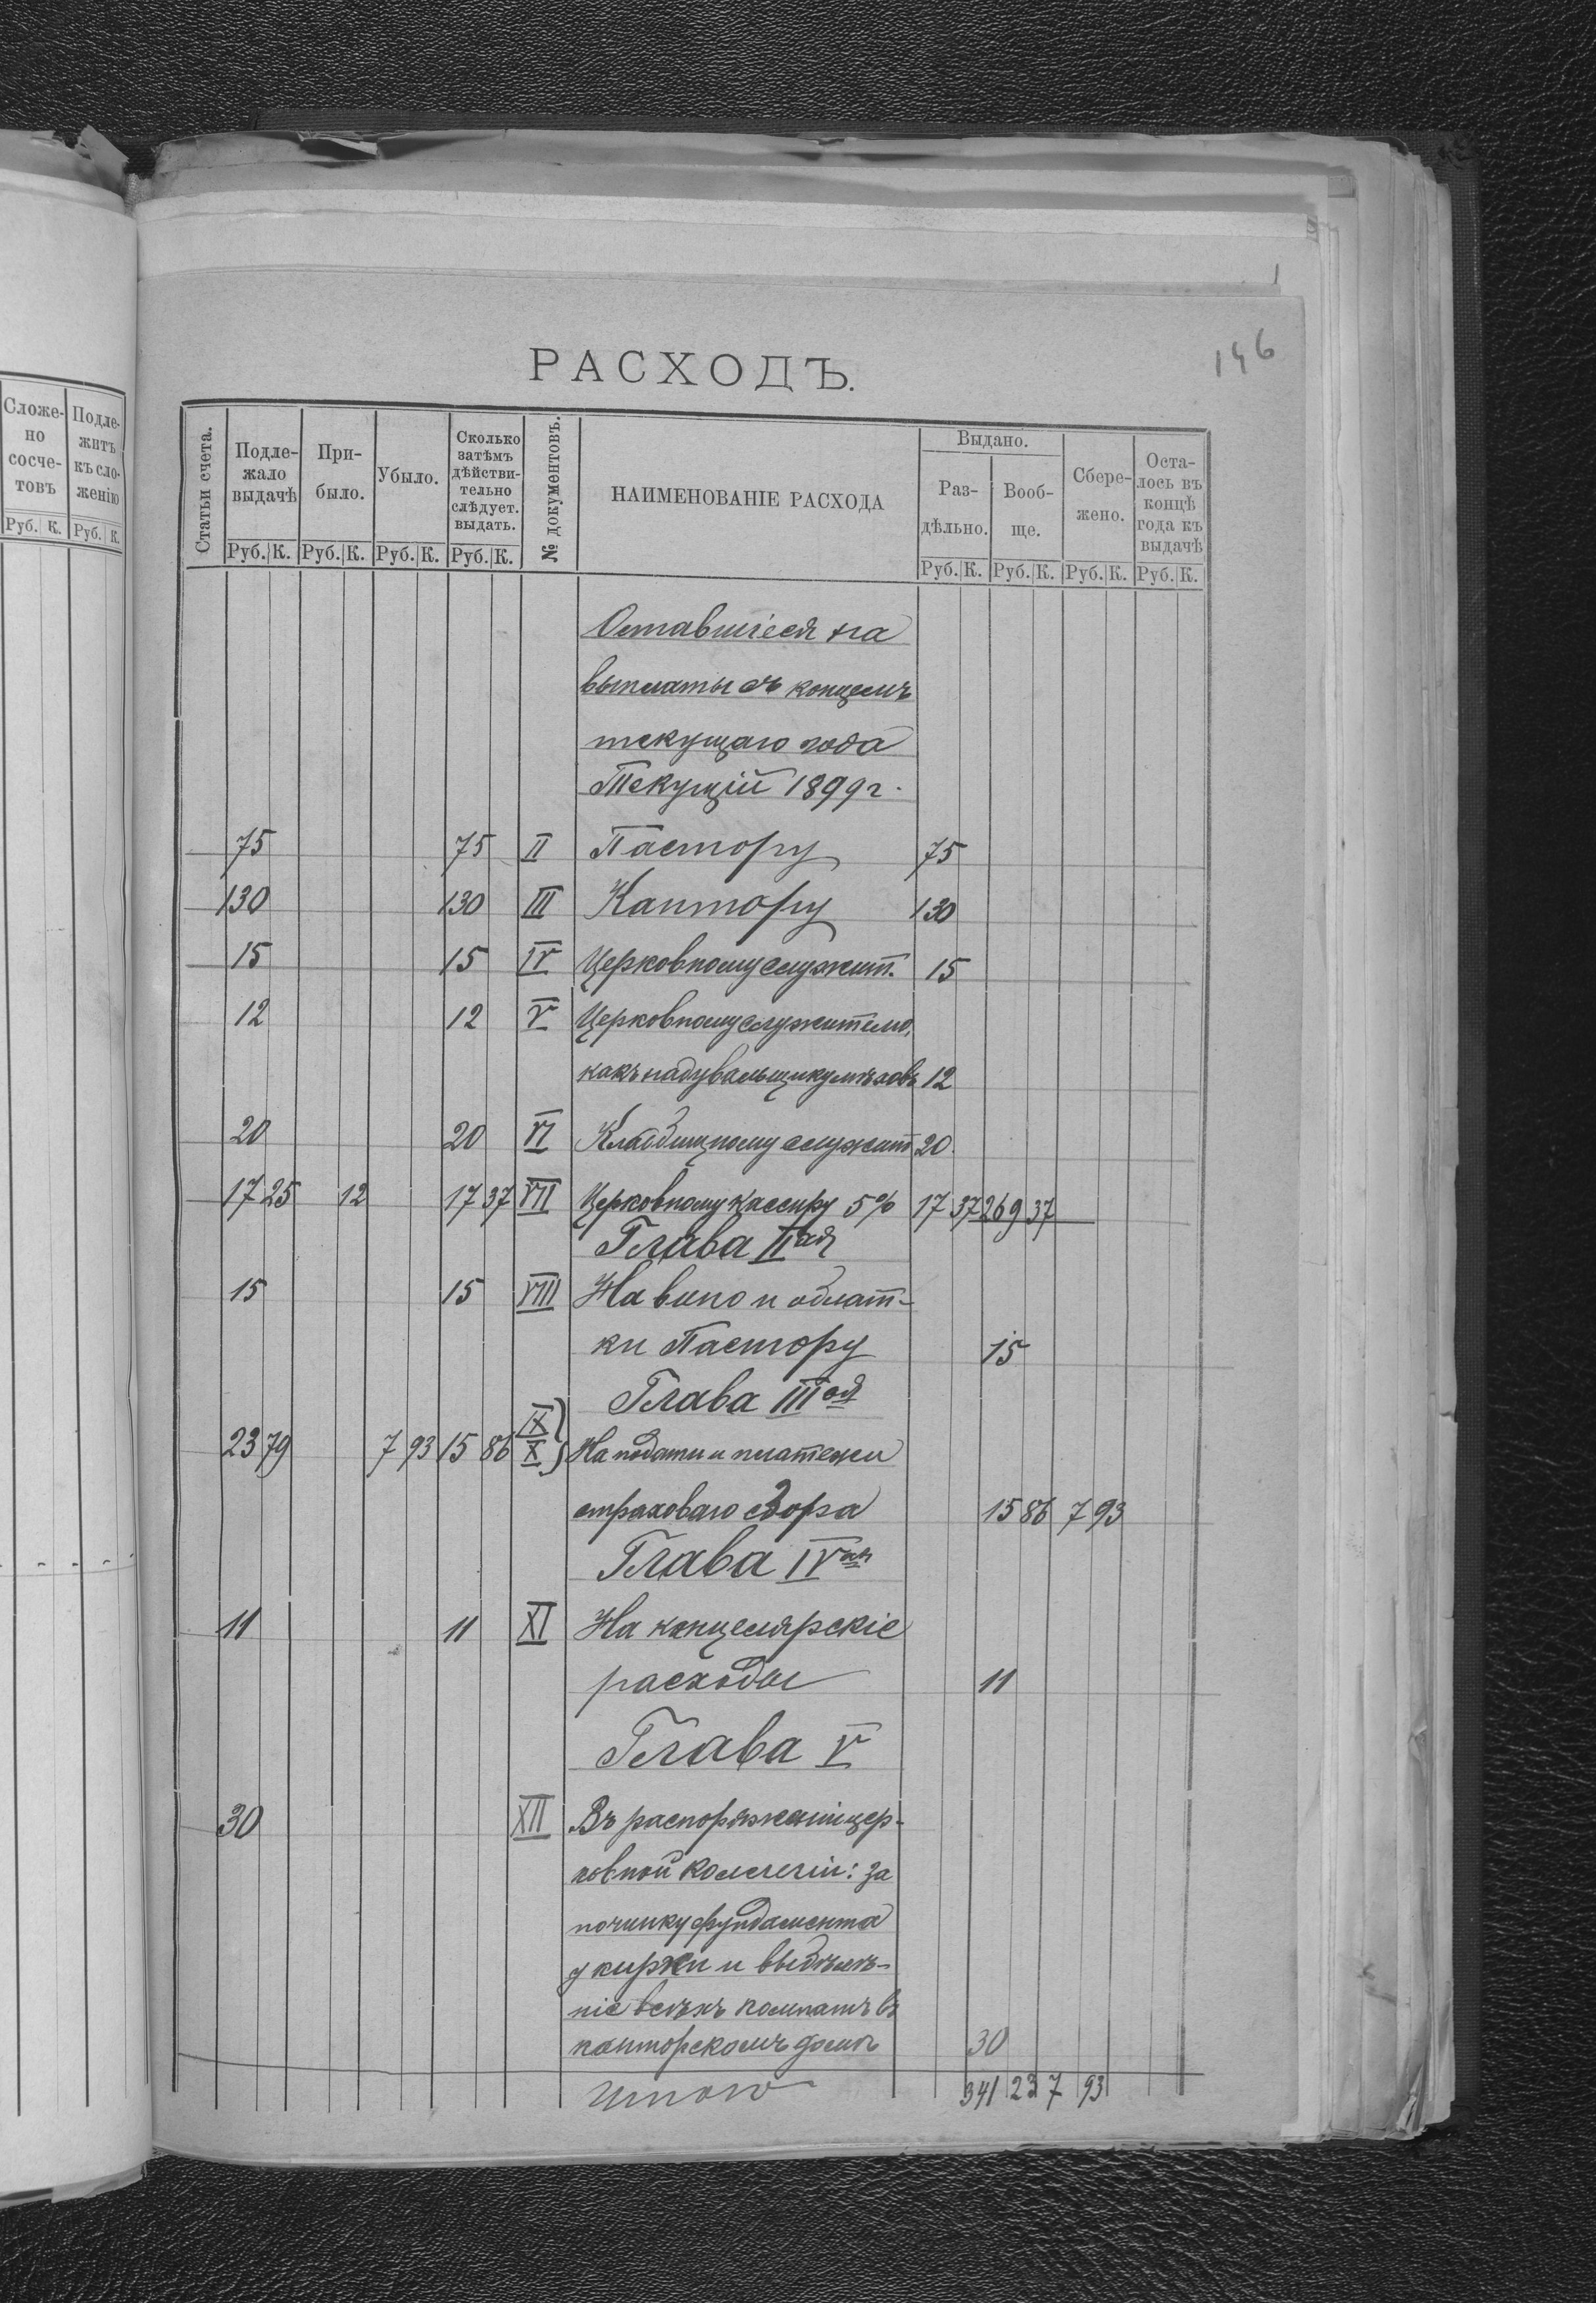 146
РАСХОДЪ.
Сложе-
но
сосче-
товъ
Подле-
житъ
къ сло-
женію
Руб. К. Руб. К.
Статьи счета.
Подле-
жало
выдачѣ
При-
было.
Убыло.
Сколько
затѣмъ
дѣйстви-
тельно
слѣдует.
выдать.
№ документовъ.
НАИМЕНОВАНІЕ РАСХОДА
Выдано.
Раз-
дѣльно.
Вооб-
ще.
Сбере-
жено.
Оста-
лось въ
концѣ
года къ
выдачѣ
Руб. К. Руб. К. Руб. К. Руб. К. Руб. К. Руб. К. Руб. К. Руб. К.
Оставшіеся на
выплаты съ концемъ
текущаго года
Текущій 1899 г.
75 75 II Пастору 75
130 130 III Кантору 130
15 15 IV Церковному служит. 15
12 12 V Церковному служителю,
какъ надувальщику мѣховъ 12
20 20 VI Кладбищному служит 20.
17 25 12 17 37 VII Церковному кассиру 5% 17 37 269 37
Глава II ая
15 15 VIII На вино и облат-
ки Пастору 15
Глава III ая
23 79 7 93 15 86 IX X На подати и платежи
страховаго сбора 15 86 7 93
Глава IV ая
11 11 XI На канцелярскіе
расходы 11
Глава V
30 XII Въ распоряженіи цер-
ковной коллегіи: за
починку фундамента
у кирхи и выбѣле-
ніе всѣхъ комнатъ въ
канторскомъ домѣ 30
Итого 341 23 7 93